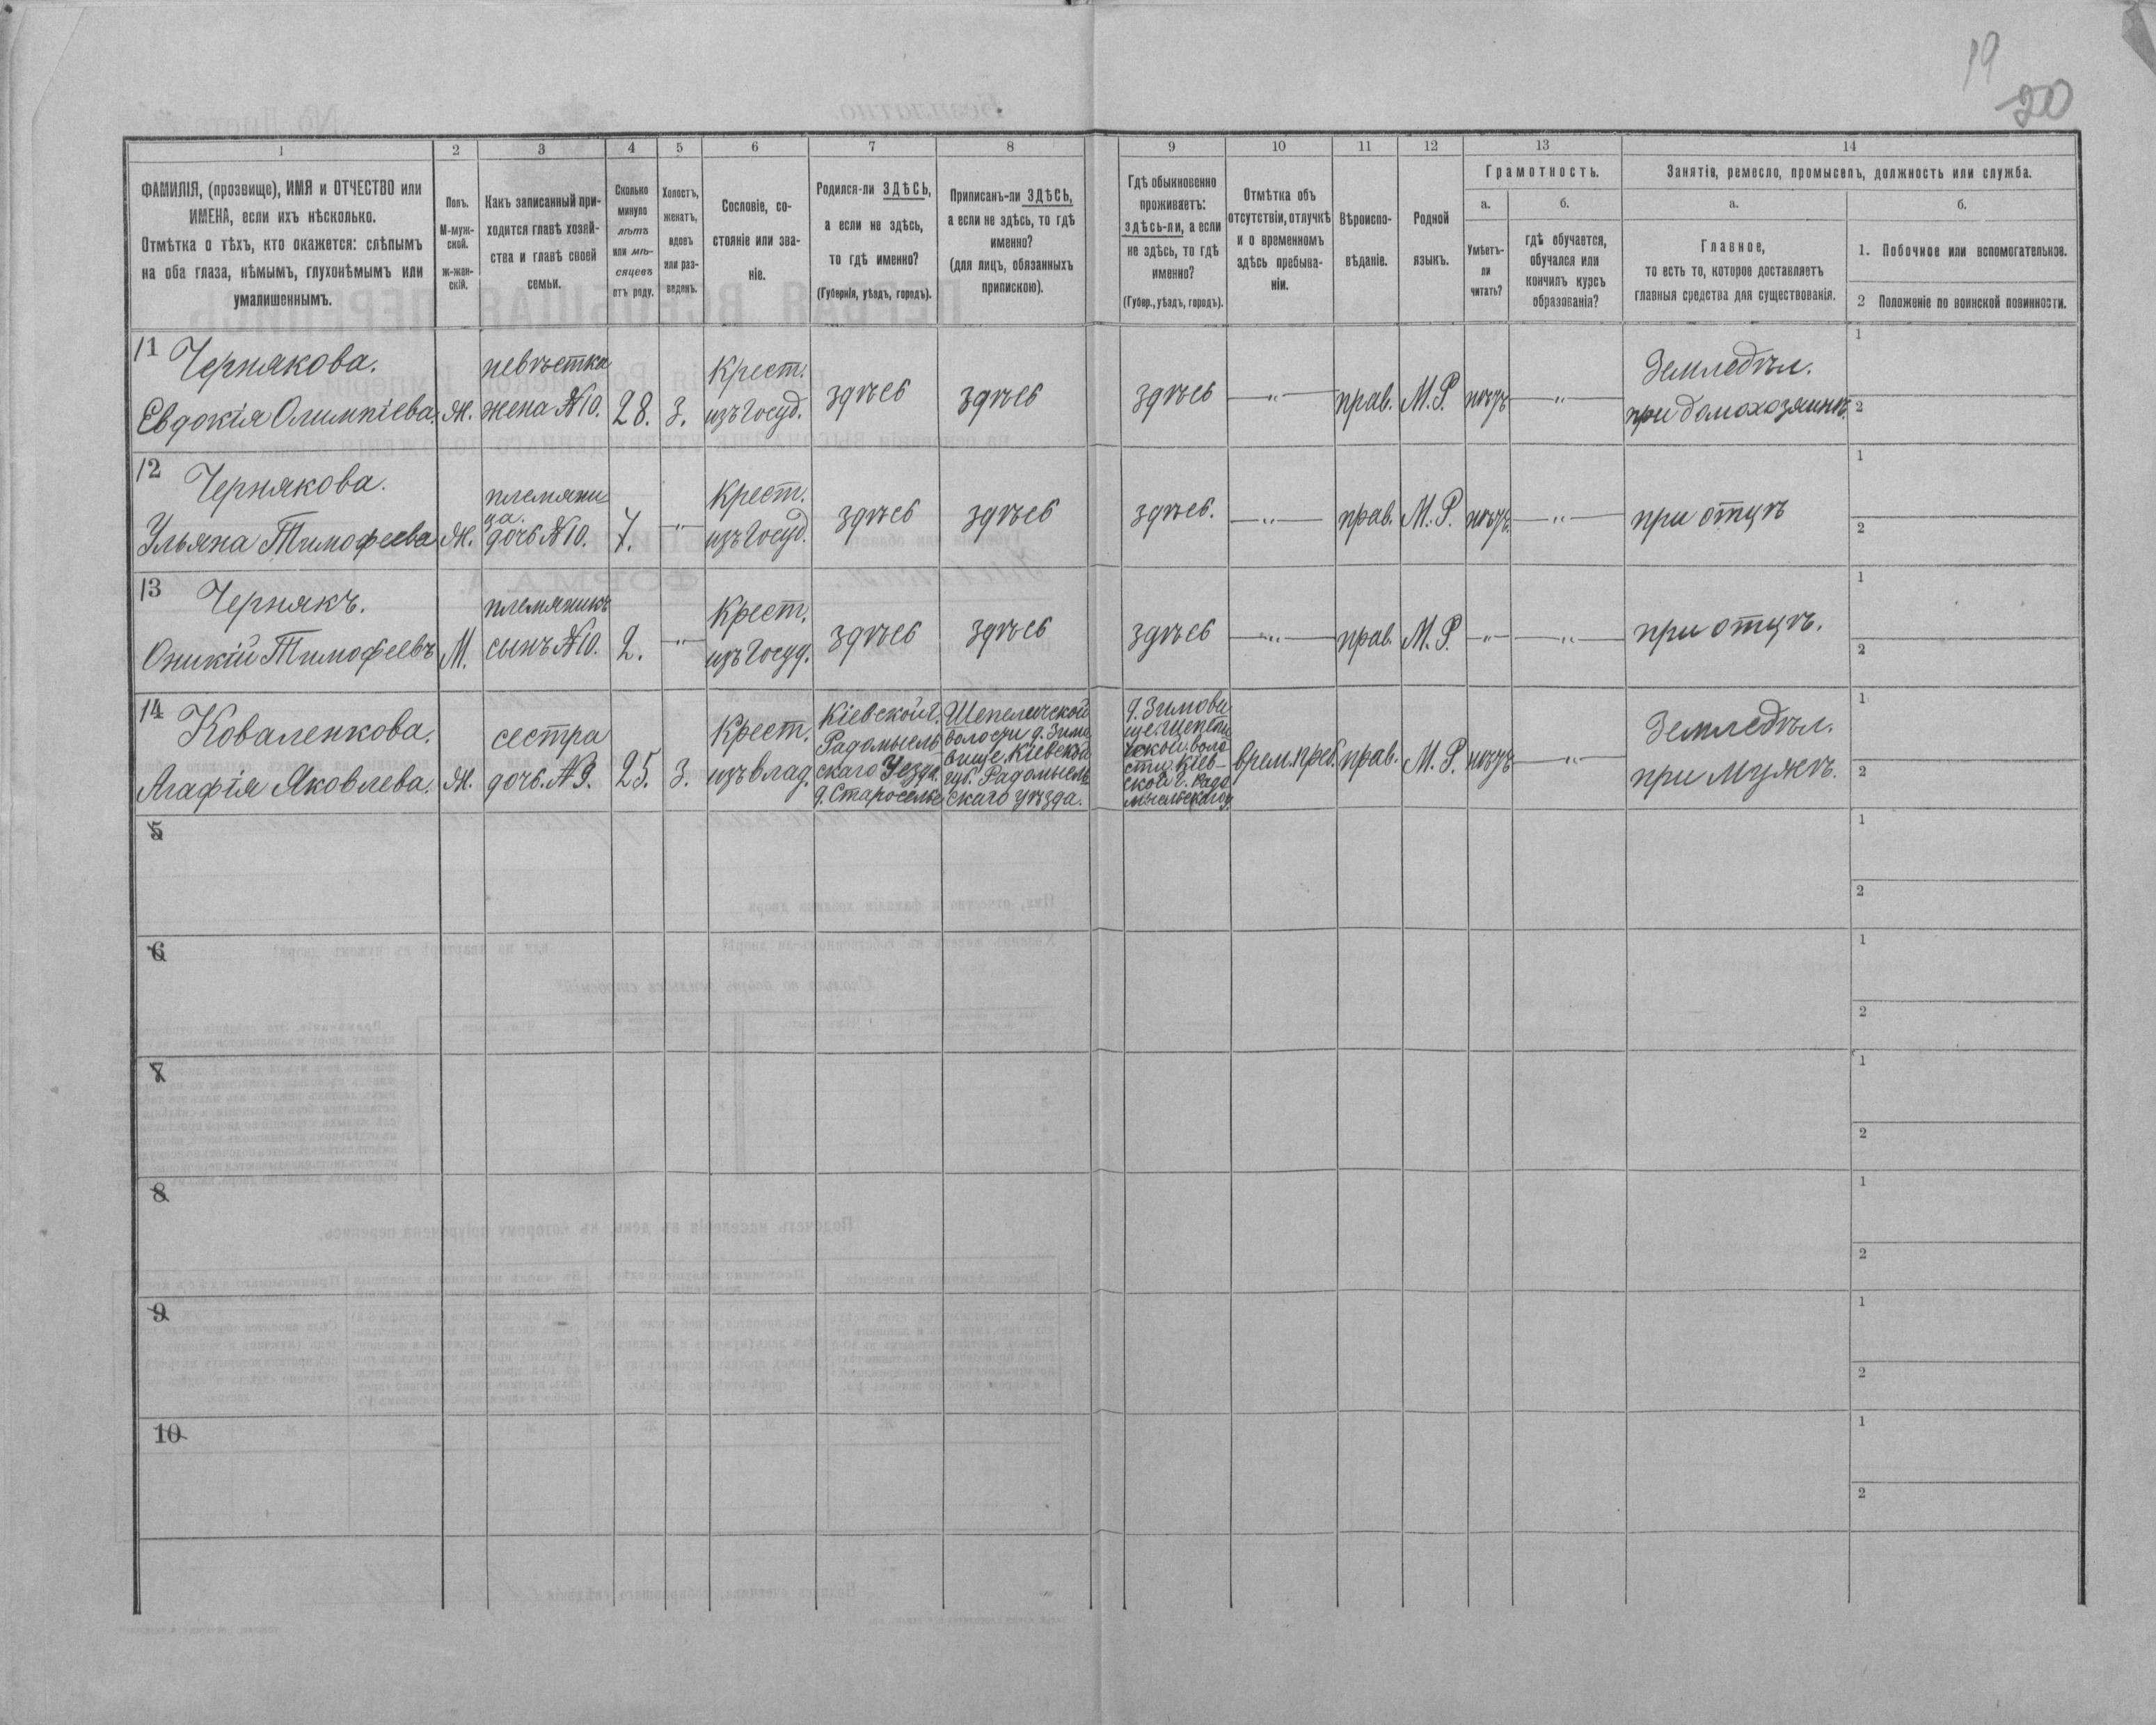 19
20
1
2
3
4
5
6
7
8
9
10
11
12
13
14
ФАМИЛІЯ, (прозвище), ИМЯ и ОТЧЕСТВО или
ИМЕНА, если ихъ нѣсколько.
Отмѣтка о тѣхъ, кто окажется: слѣпымъ
на оба глаза, нѣмымъ, глухонѣмымъ или
умалишеннымъ.
Полъ.
М-муж-
ской.
ж-жен-
скій.
Какъ записанный при-
ходится главѣ хозяй-
ства и главѣ своей
семьи.
Сколько
минуло
лѣтъ
или мѣ-
сяцевъ
отъ роду.
Холостъ,
женатъ,
вдовъ
или раз-
веденъ.
Сословіе, со-
стояніе или зва-
ніе.
Родился-ли ЗДѢСЬ,
а если не здѣсь,
то гдѣ именно?
(Губернія, уѣздъ, городъ).
Приписанъ-ли ЗДѢСЬ,
а если не здѣсь, то гдѣ
именно?
(для лицъ, обязанныхъ
припискою).
Гдѣ обыкновенно
проживаетъ:
здѣсь-ли, а если
не здѣсь, то гдѣ
именно?
(Губер., уѣздъ, городъ).
Отмѣтка объ
отсутствіи, отлучкѣ
и о временномъ
здѣсь пребыва-
ніи.
Вѣроиспо-
вѣданіе.
Родной
языкъ.
Грамотность.
а.
Умѣетъ-
ли
читать?
б.
гдѣ обучается,
обучался или
кончилъ курсъ
образованія?
Занятіе, ремесло, промыселъ, должность или служба.
а.
Главное,
то есть то, которое доставляетъ
главныя средства для существованія.
б.
1. Побочное или вспомогательное.
2 Положеніе по воинской повинности.
11 Чернякова.
Евдокія Олимпіева.
Ж.
невѣстка
жена №10.
28.
З.
Крест.
изъ Госуд.
здѣсь
здѣсь
здѣсь
— " —
прав.
М.Р.
нѣтъ
— " —
Земледѣл.
при домохозяинѣ.
1
2
12 Чернякова.
Ульяна Тимофеева
Ж.
племяни-
ца.
дочь №10.
7.
— " —
Крест.
изъ Госуд.
здѣсь
здѣсь
здѣсь.
— " —
прав.
М.Р.
нѣтъ
— " —
при отцѣ
1
2
13 Чернякъ.
Оникій Тимофеевъ
М.
племяникъ
сынъ №10.
2.
— " —
Крест.
изъ Госуд.
здѣсь
здѣсь
здѣсь
— " —
прав.
М.Р.
— " —
— " —
при отцѣ.
1
2
14 Коваленкова.
Агафія Яковлева.
Ж.
сестра
дочь. №9.
25.
З.
Крест.
изъ влад.
Кіевской г.
Радомысль
скаго Уезда.
д. Староселье
Шепеличской
волости д. Зимо
вище. Кіевской
губ. Радомысль
скаго уѣзда.
д. Зимови
ще. Шепели
чской. воло
сти. Кіев-
ской г. Радо
мысльскаго у.
врем. преб.
прав.
М.Р.
нѣтъ
— " —
Земледѣл.
при Мужѣ.
1
2
5
1
2
6
1
2
7
1
2
8
1
2
9
1
2
10
1
2